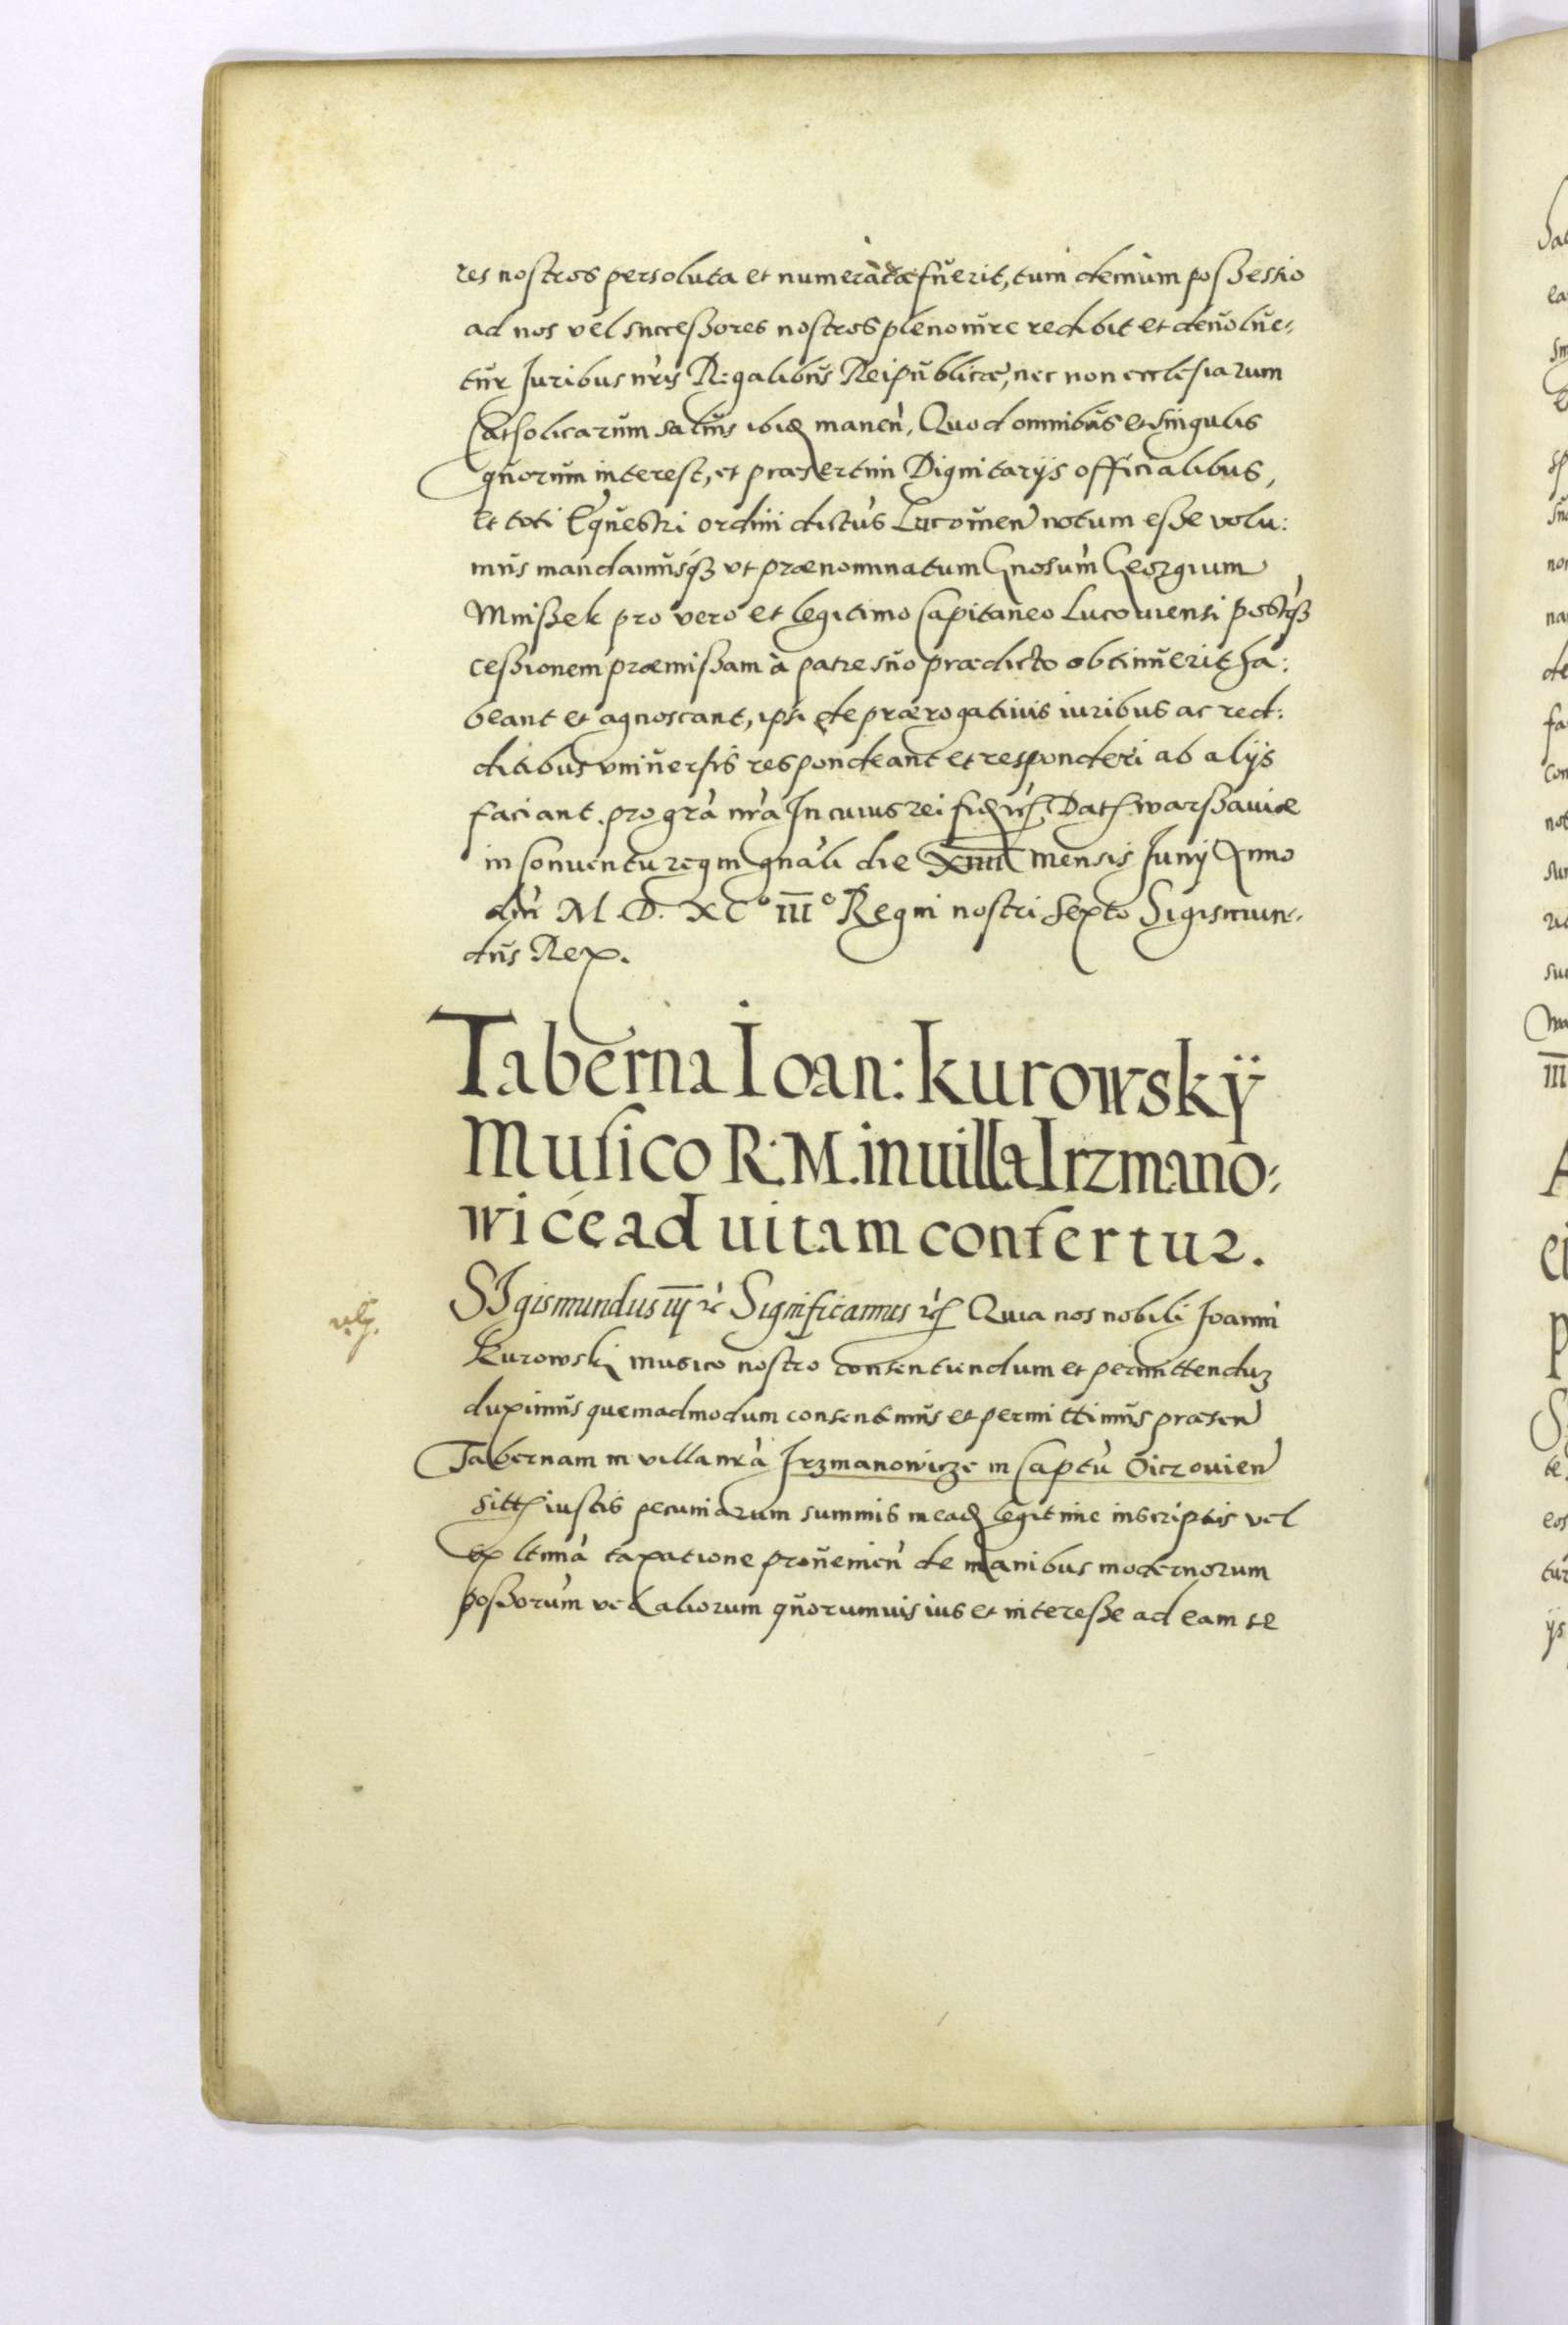 res nostros persoluta et numerata fuerit, tum demum possessio
ad nos vel successores nostros pleno iure redibit et deuolue-
tur Juribus nr̃is Regalibus Reipublicæ, nec non ecclesiarum
Catholicarum saluis ibid manen̄. Quod omnibus et singulis
quorum interest, et præsertim Dignitarijs officialibus,
et toti Equestri ordini dictus Lucouien̄ notum esse volu:
mus mandamusq; vt prænominatum Gnosum̄ Georgium
Mnissek pro vero et legitimo Capitaneo Lucouiensi postq;
cessionem præmissam à patre suo prædicto obtinuerit ha:
beant et agnoscant, ipsi de prærogatiuis iuribus ac red:
ditibus vniuersis respondeant et responderi ab alijs
faciant. pro gr̃a nr̃a In cuius rei fid etc. Dat. Warssauiæ
in Conuentu regni gnãli die XIIII mensis Junij Anno
dñi M. D. XC° III° Regni nostri Sexto Sigismun-
dus Rex.
Taberna Ioan: Kurowskÿ
Musico R: M. in uilla Irzmano-
wice ad uitam confertur.
SIgismundus iij etc Significamus etc. Quia nos nobili Joanni
Kurowski musico nostro consentiendum et permittenduz
duximus quemadmodum consentimus et permittimus præsen̄
Tabernam in villa nr̃a Jrzmanowicze in Captu Oiczouien̄
sitt. iustis pecuniarum summis in ead legitime inscriptis vel
ex ltima taxatione prouenien̄ de manibus modernorum
possorum vel aliorum quorumuis ius et interesse ad eam se